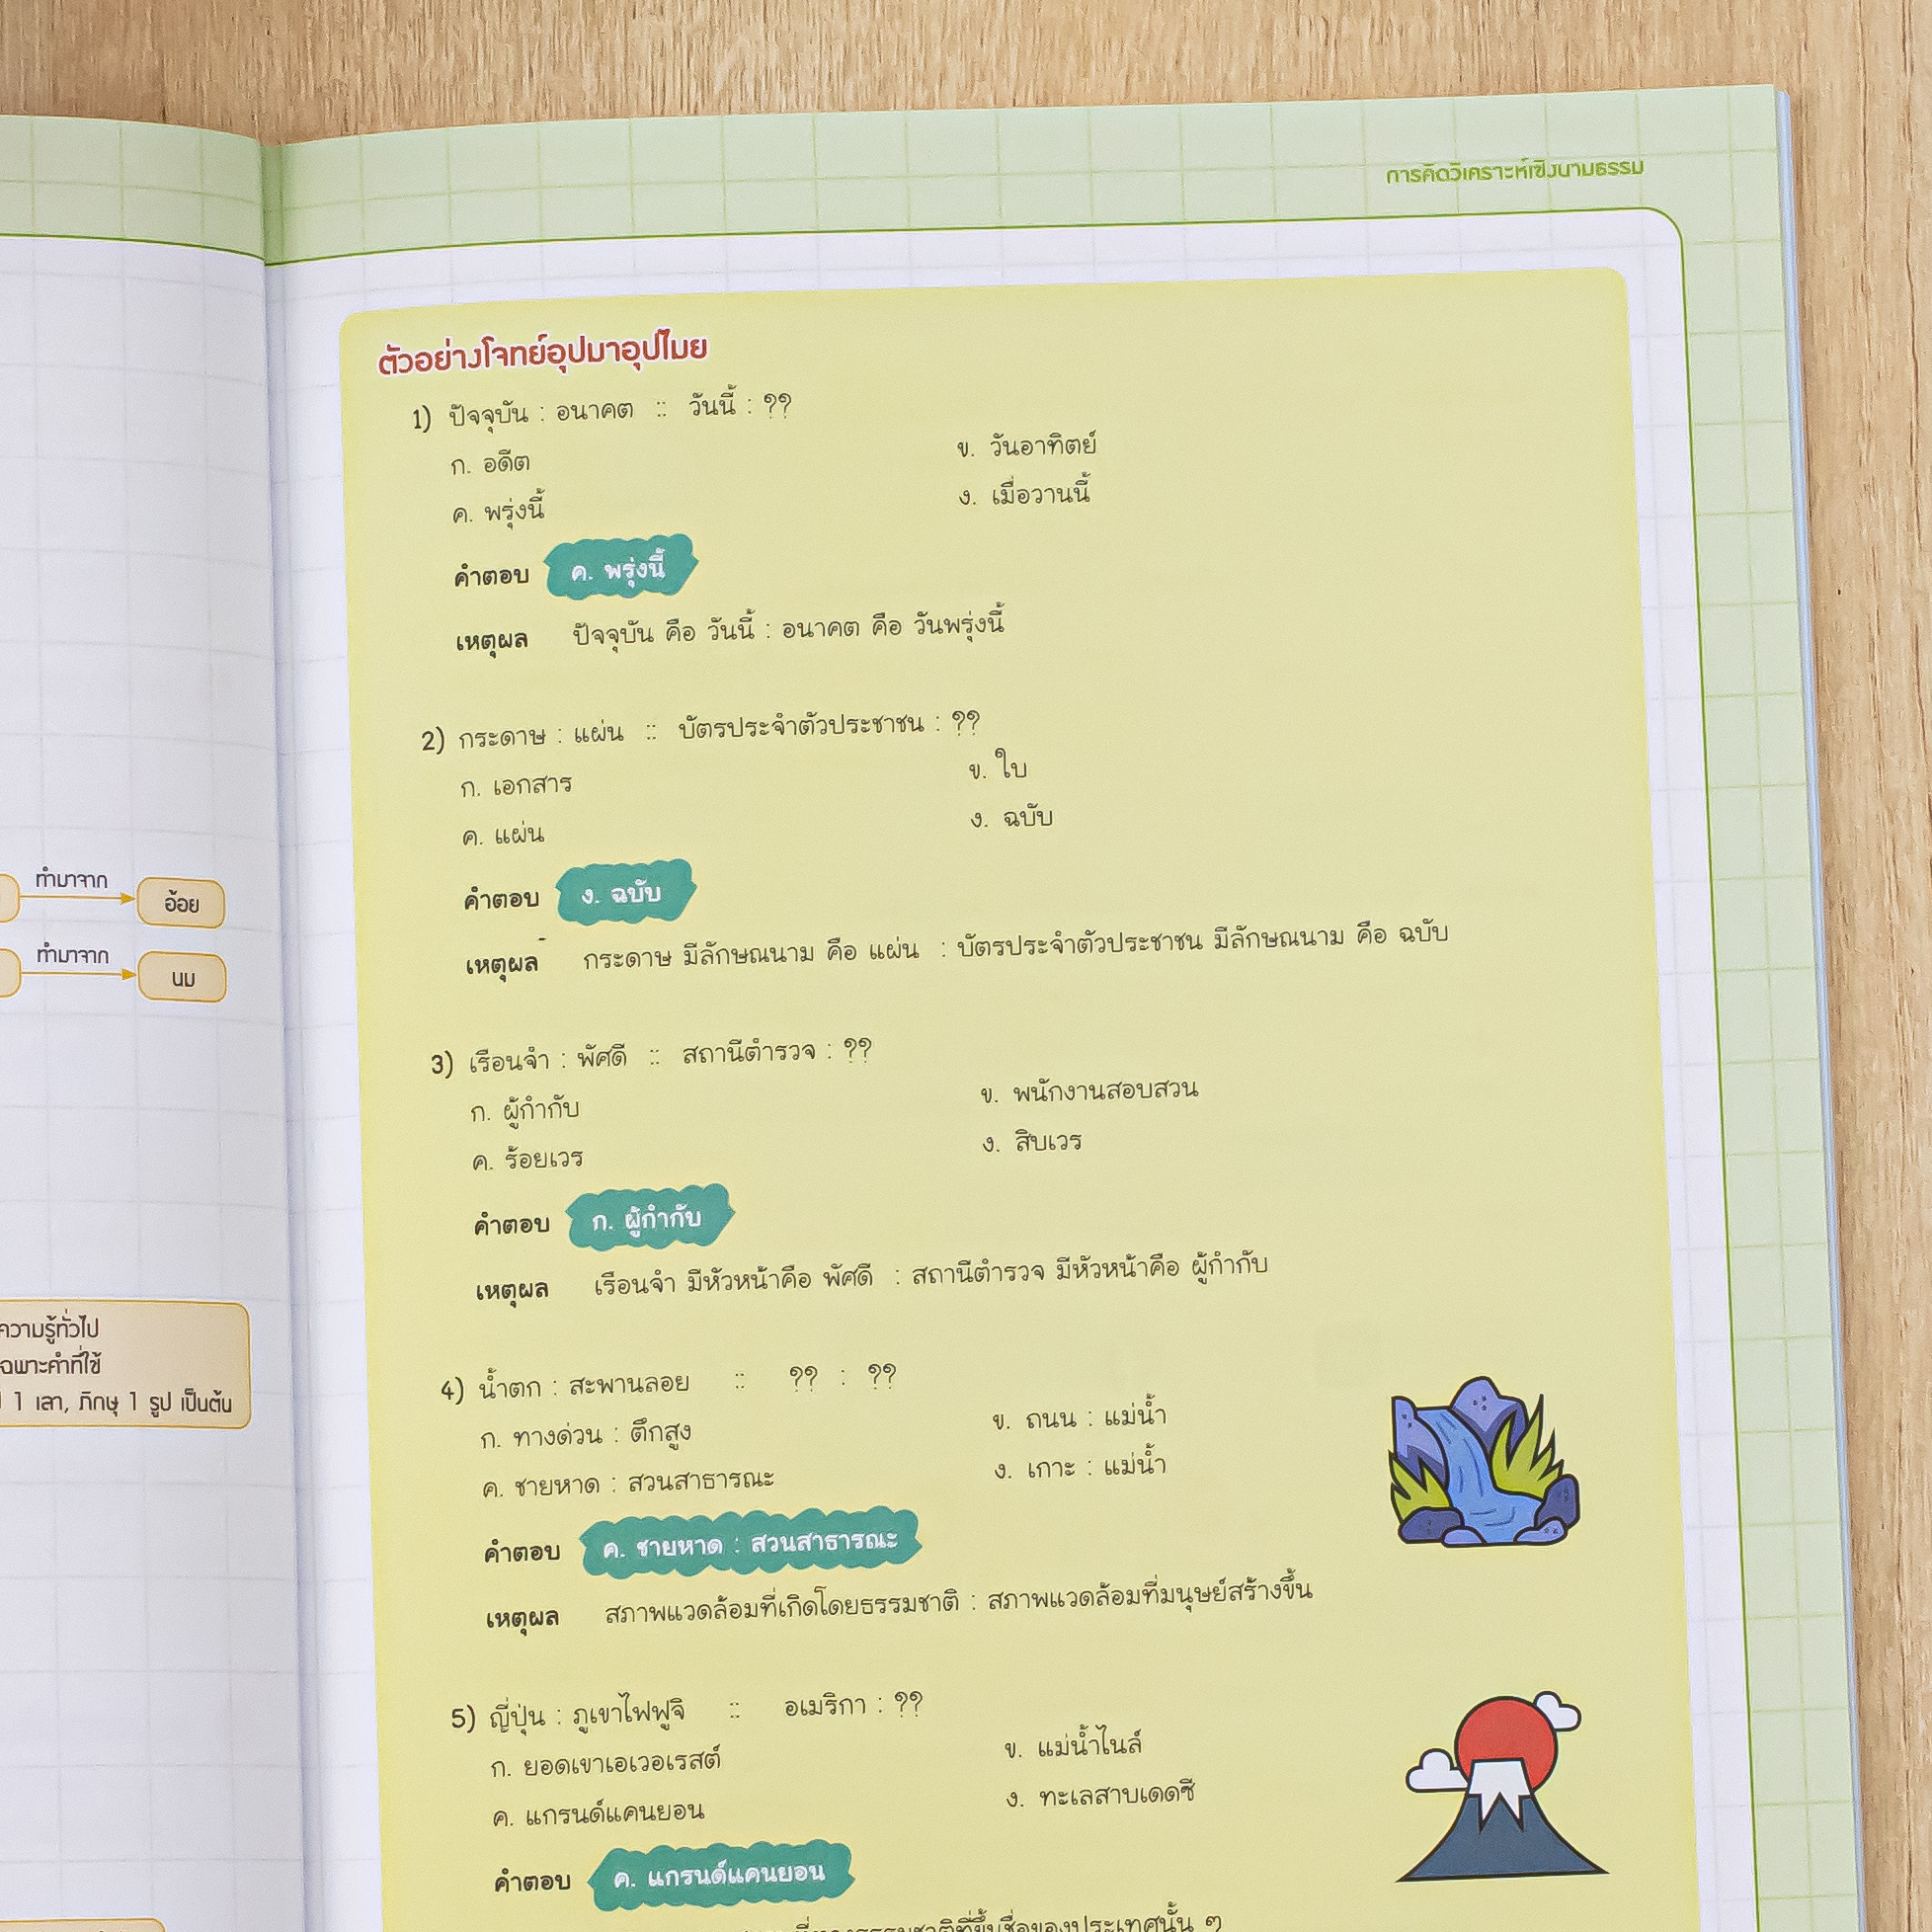 ทำมาจาก
อ้อย
ทำมาจาก
นม
ความรู้ทั่วไป
ฉพาะคำที่ใช้
1 เลา, ภิกษุ 1 รูป เป็นต้น
การคิดวิเคราะห์เชิงนามธรรม
ตัวอย่างโจทย์อุปมาอุปไมย
1) ปัจจุบัน : อนาคต :: วันนี้ : ??
ก. อดีต ข. วันอาทิตย์
ค. พรุ่งนี้ ง. เมื่อวานนี้
คำตอบ ค. พรุ่งนี้
เหตุผล ปัจจุบัน คือ วันนี้ : อนาคต คือ วันพรุ่งนี้
2) กระดาษ : แผ่น :: บัตรประจำตัวประชาชน : ??
ก. เอกสาร ข. ใบ
ค. แผ่น ง. ฉบับ
คำตอบ ง. ฉบับ
เหตุผล กระดาษ มีลักษณนาม คือ แผ่น : บัตรประจำตัวประชาชน มีลักษณนาม คือ ฉบับ
3) เรือนจำ : พัศดี :: สถานีตำรวจ : ??
ก. ผู้กำกับ ข. พนักงานสอบสวน
ค. ร้อยเวร ง. สิบเวร
คำตอบ ก. ผู้กำกับ
เหตุผล เรือนจำ มีหัวหน้าคือ พัศดี : สถานีตำรวจ มีหัวหน้าคือ ผู้กำกับ
4) น้ำตก : สะพานลอย :: ?? : ??
ก. ทางด่วน : ตึกสูง ข. ถนน : แม่น้ำ
ค. ชายหาด : สวนสาธารณะ ง. เกาะ : แม่น้ำ
คำตอบ ค. ชายหาด : สวนสาธารณะ
เหตุผล สภาพแวดล้อมที่เกิดโดยธรรมชาติ : สภาพแวดล้อมที่มนุษย์สร้างขึ้น
5) ญี่ปุ่น : ภูเขาไฟฟูจิ :: อเมริกา : ??
ก. ยอดเขาเอเวอเรสต์ ข. แม่น้ำไนล์
ค. แกรนด์แคนยอน ง. ทะเลสาบเดดซี
คำตอบ ค. แกรนด์แคนยอน
ที่ขึ้นชื่อของประเทศนั้น ๆ